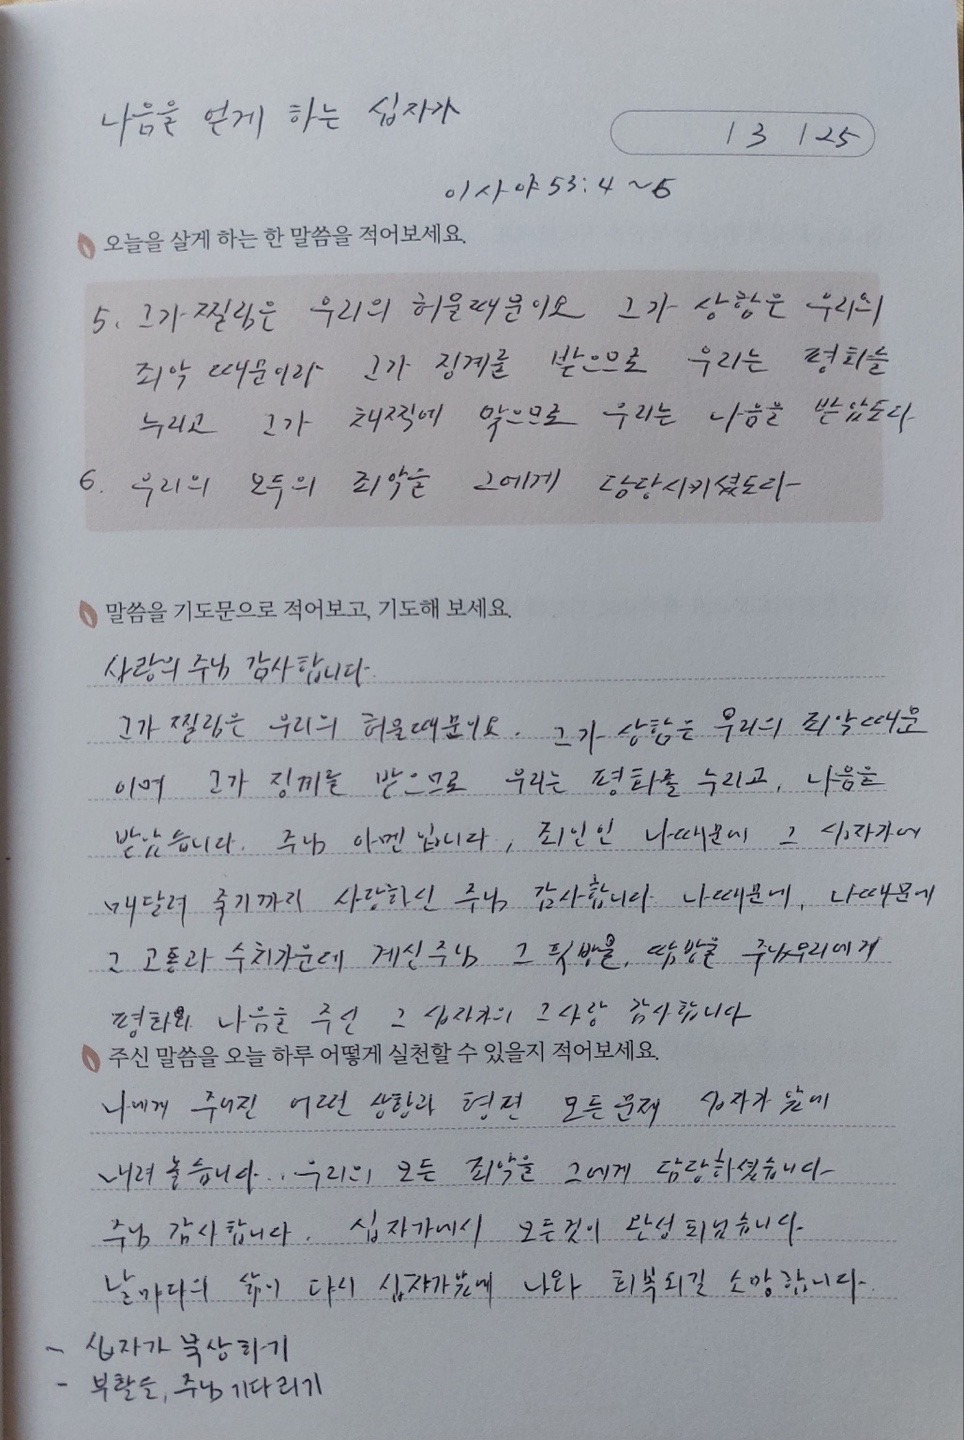 나음을 얻게 하는 십자가
13 125
이사야 53:4~6
오늘을 살게 하는 한 말씀을 적어보세요.
5. 그가 찔림은 우리의 허물때문이요 그가 상함은 우리의
죄악 때문이라 그가 징계를 받으므로 우리는 평화를
누리고 그가 채찍에 맞으므로 우리는 나음을 받았도다
6. 우리의 모두의 죄악을 그에게 담당시키셨도다
말씀을 기도문으로 적어보고, 기도해 보세요.
사랑의 주님 감사합니다.
그가 찔림은 우리의 허물때문이요. 그가 상함은 우리의 죄악때문
이며 그가 징계를 받으므로 우리는 평화를 누리고, 나음을
받았습니다. 주님 아멘입니다, 죄인인 나때문에 그 십자가에
매달려 죽기까지 사랑하신 주님 감사합니다 나때문에, 나때문에
그 고통과 수치가운데 계신주님 그 핏방울, 땀방울 주님우리에게
평화와 나음을 주신 그 십자가의 그사랑 감사합니다
주신 말씀을 오늘 하루 어떻게 실천할 수 있을지 적어보세요.
나에게 주어진 어떤 상황과 형편 모든문제 십자가 앞에
내려 놓습니다.. 우리의 모든 죄악을 그에게 담당하셨습니다
주님 감사합니다. 십자가에서 모든것이 완성되었습니다.
날마다의 삶이 다시 십자가앞에 나와 회복되길 소망합니다.
~ 십자가 묵상하기
- 부활을, 주님기다리기